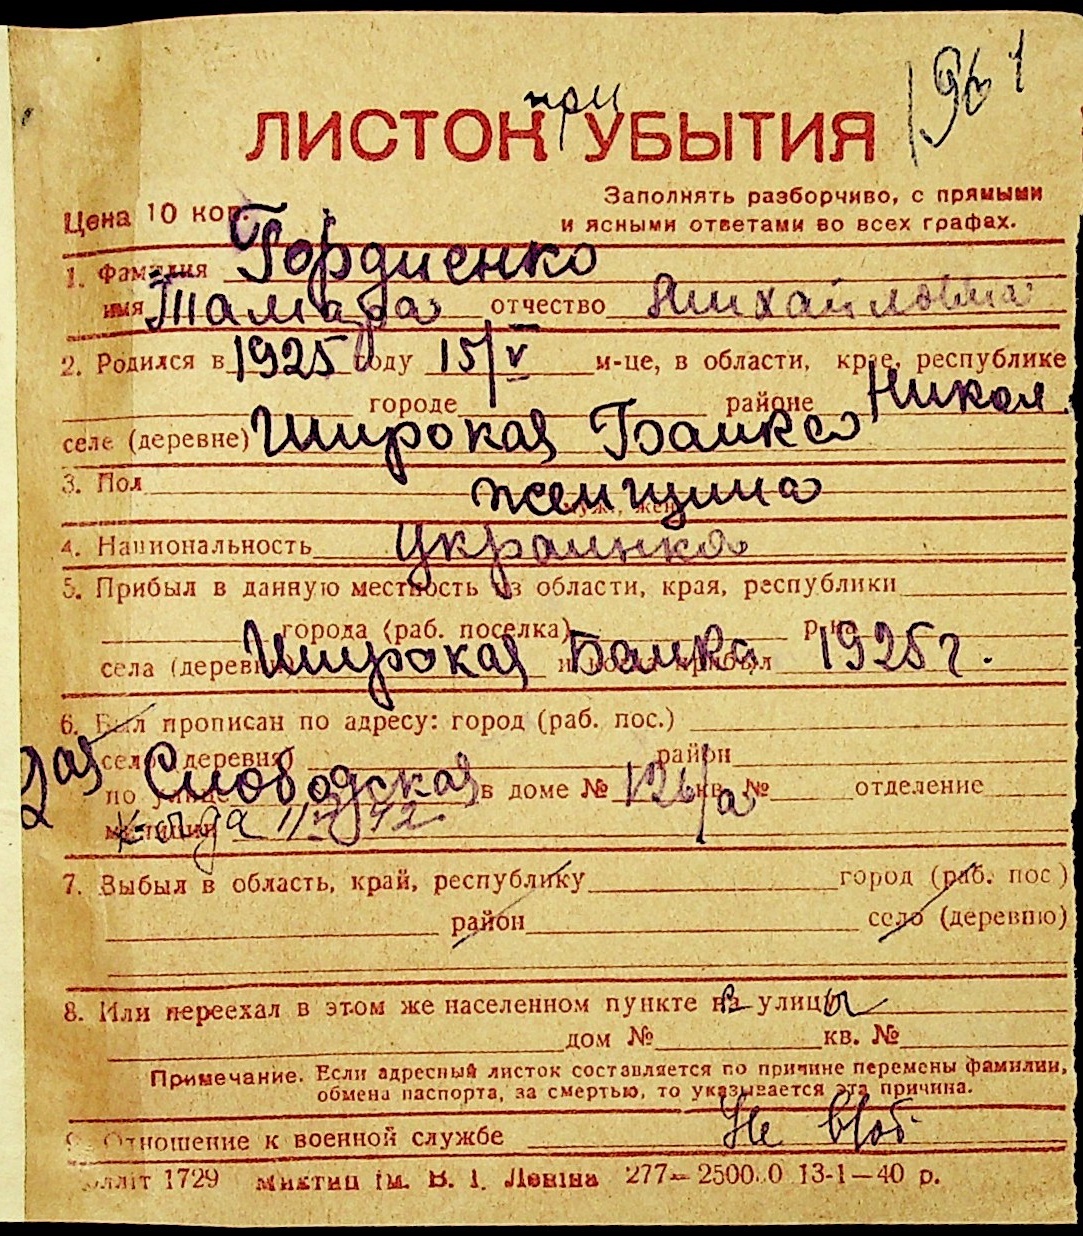 1961
при
ЛИСТОК УБЫТИЯ
Заполнять разборчиво, с прямыми
Цена 10 коп.
и ясными ответами во всех графах.
1. Фамилия Гордиенко
имя Тамара отчество Михайловна
2. Родился в 1925 году 15/V м-це, в области, крае, республике
городе районе Никол.
селе (деревне) Широкая Балка
3. Пол женщина
муж., жен.
4. Национальность Украинка
5. Прибыл в данную местность из области, края, республики
города (раб. поселка) р-на
села (деревни) Широкая Балка и когда прибыл 1925 г.
6. Был прописан по адресу: город (раб. пос.)
село (деревня) район
2ая Слободская
по улице в доме № 126/а кв. № отделение
милиции
7. Выбыл в область, край, республику город (раб. пос)
район село (деревню)
8. Или переехал в этом же населенном пункте на улицу
дом № кв. №
Примечание. Если адресный листок составляется по причине перемены фамилии,
обмена паспорта, за смертью, то указывается эта причина.
9. Отношение к военной службе Не в/об.
1729 им. В. І. Леніна 277—2500.0 13-1—40 р.